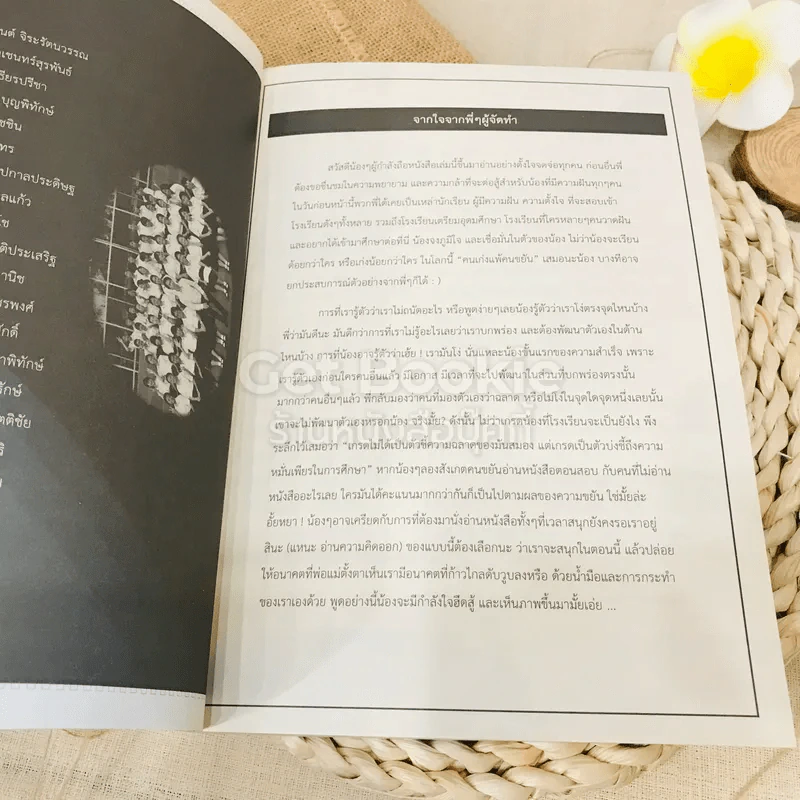 นต์ จิระรัตนวรรณ
เชนทร์สุรพันธ์
ธียรปรีชา
บุญพิทักษ์
ชชิน
ทร
ปกาลประดิษฐ
ลแก้ว
โช
ติประเสริฐ
านิช
รพงศ์
ักดิ์
าพิทักษ์
รักษ์
ตติชัย
ริ
จากใจจากพี่ๆผู้จัดทำ
สวัสดีน้องๆผู้กำลังถือหนังสือเล่มนี้ขึ้นมาอ่านอย่างตั้งใจจดจ่อทุกคน ก่อนอื่นพี่
ต้องขอชื่นชมในความพยายาม และความกล้าที่จะต่อสู้สำหรับน้องที่มีความฝันทุกๆคน
ในวันก่อนหน้านี้พวกพี่ได้เคยเป็นเหล่านักเรียน ผู้มีความฝัน ความตั้งใจ ที่จะสอบเข้า
โรงเรียนดังๆทั้งหลาย รวมถึงโรงเรียนเตรียมอุดมศึกษา โรงเรียนที่ใครหลายๆคนวาดฝัน
และอยากได้เข้ามาศึกษาต่อที่นี่ น้องจงภูมิใจ และเชื่อมั่นในตัวของน้อง ไม่ว่าน้องจะเรียน
ด้อยกว่าใคร หรือเก่งน้อยกว่าใคร ในโลกนี้ "คนเก่งแพ้คนขยัน" เสมอนะน้อง บางทีอาจ
ยกประสบการณ์ตัวอย่างจากพี่ๆก็ได้ : )
การที่เรารู้ตัวว่าเราไม่ถนัดอะไร หรือพูดง่ายๆเลยน้องรู้ตัวว่าเราโง่ตรงจุดไหนบ้าง
พี่ว่ามันดีนะ มันดีกว่าการที่เราไม่รู้อะไรเลยว่าเราบกพร่อง และต้องพัฒนาตัวเองในด้าน
ไหนบ้าง การที่น้องอาจรู้ตัวว่าเฮ้ย ! เรามันโง่ นั่นแหละน้องขั้นแรกของความสำเร็จ เพราะ
เรารู้ตัวเองก่อนใครคนอื่นแล้ว มีโอกาส มีเวลาที่จะไปพัฒนาในส่วนที่บกพร่องตรงนั้น
มากกว่าคนอื่นๆแล้ว พี่กลับมองว่าคนที่มองตัวเองว่าฉลาด หรือไม่โง่ในจุดใดจุดหนึ่งเลยนั้น
เขาจะไม่พัฒนาตัวเองหรอกน้อง จริงมั้ย? ดังนั้น ไม่ว่าเกรดน้องที่โรงเรียนจะเป็นยังไง พึง
ระลึกไว้เสมอว่า "เกรดไม่ได้เป็นตัวชี้ความฉลาดของมันสมอง แต่เกรดเป็นตัวบ่งชี้ถึงความ
หมั่นเพียรในการศึกษา" หากน้องๆลองสังเกตคนขยันอ่านหนังสือตอนสอบ กับคนที่ไม่อ่าน
หนังสืออะไรเลย ใครมันได้คะแนนมากกว่ากันก็เป็นไปตามผลของความขยัน ใช่มั้ยล่ะ
อั้ยหยา ! น้องๆอาจเครียดกับการที่ต้องมานั่งอ่านหนังสือทั้งๆที่เวลาสนุกยังคงรอเราอยู่
สินะ (แหนะ อ่านความคิดออก) ของแบบนี้ต้องเลือกนะ ว่าเราจะสนุกในตอนนี้ แล้วปล่อย
ให้อนาคตที่พ่อแม่ตั้งตาเห็นเรามีอนาคตที่ก้าวไกลดับวูบลงหรือ ด้วยน้ำมือและการกระทำ
ของเราเองด้วย พูดอย่างนี้น้องจะมีกำลังใจฮึดสู้ และเห็นภาพขึ้นมามั้ยเอ่ย ...
Get Bookie
ร้านหนังสือบุ๊คกี้